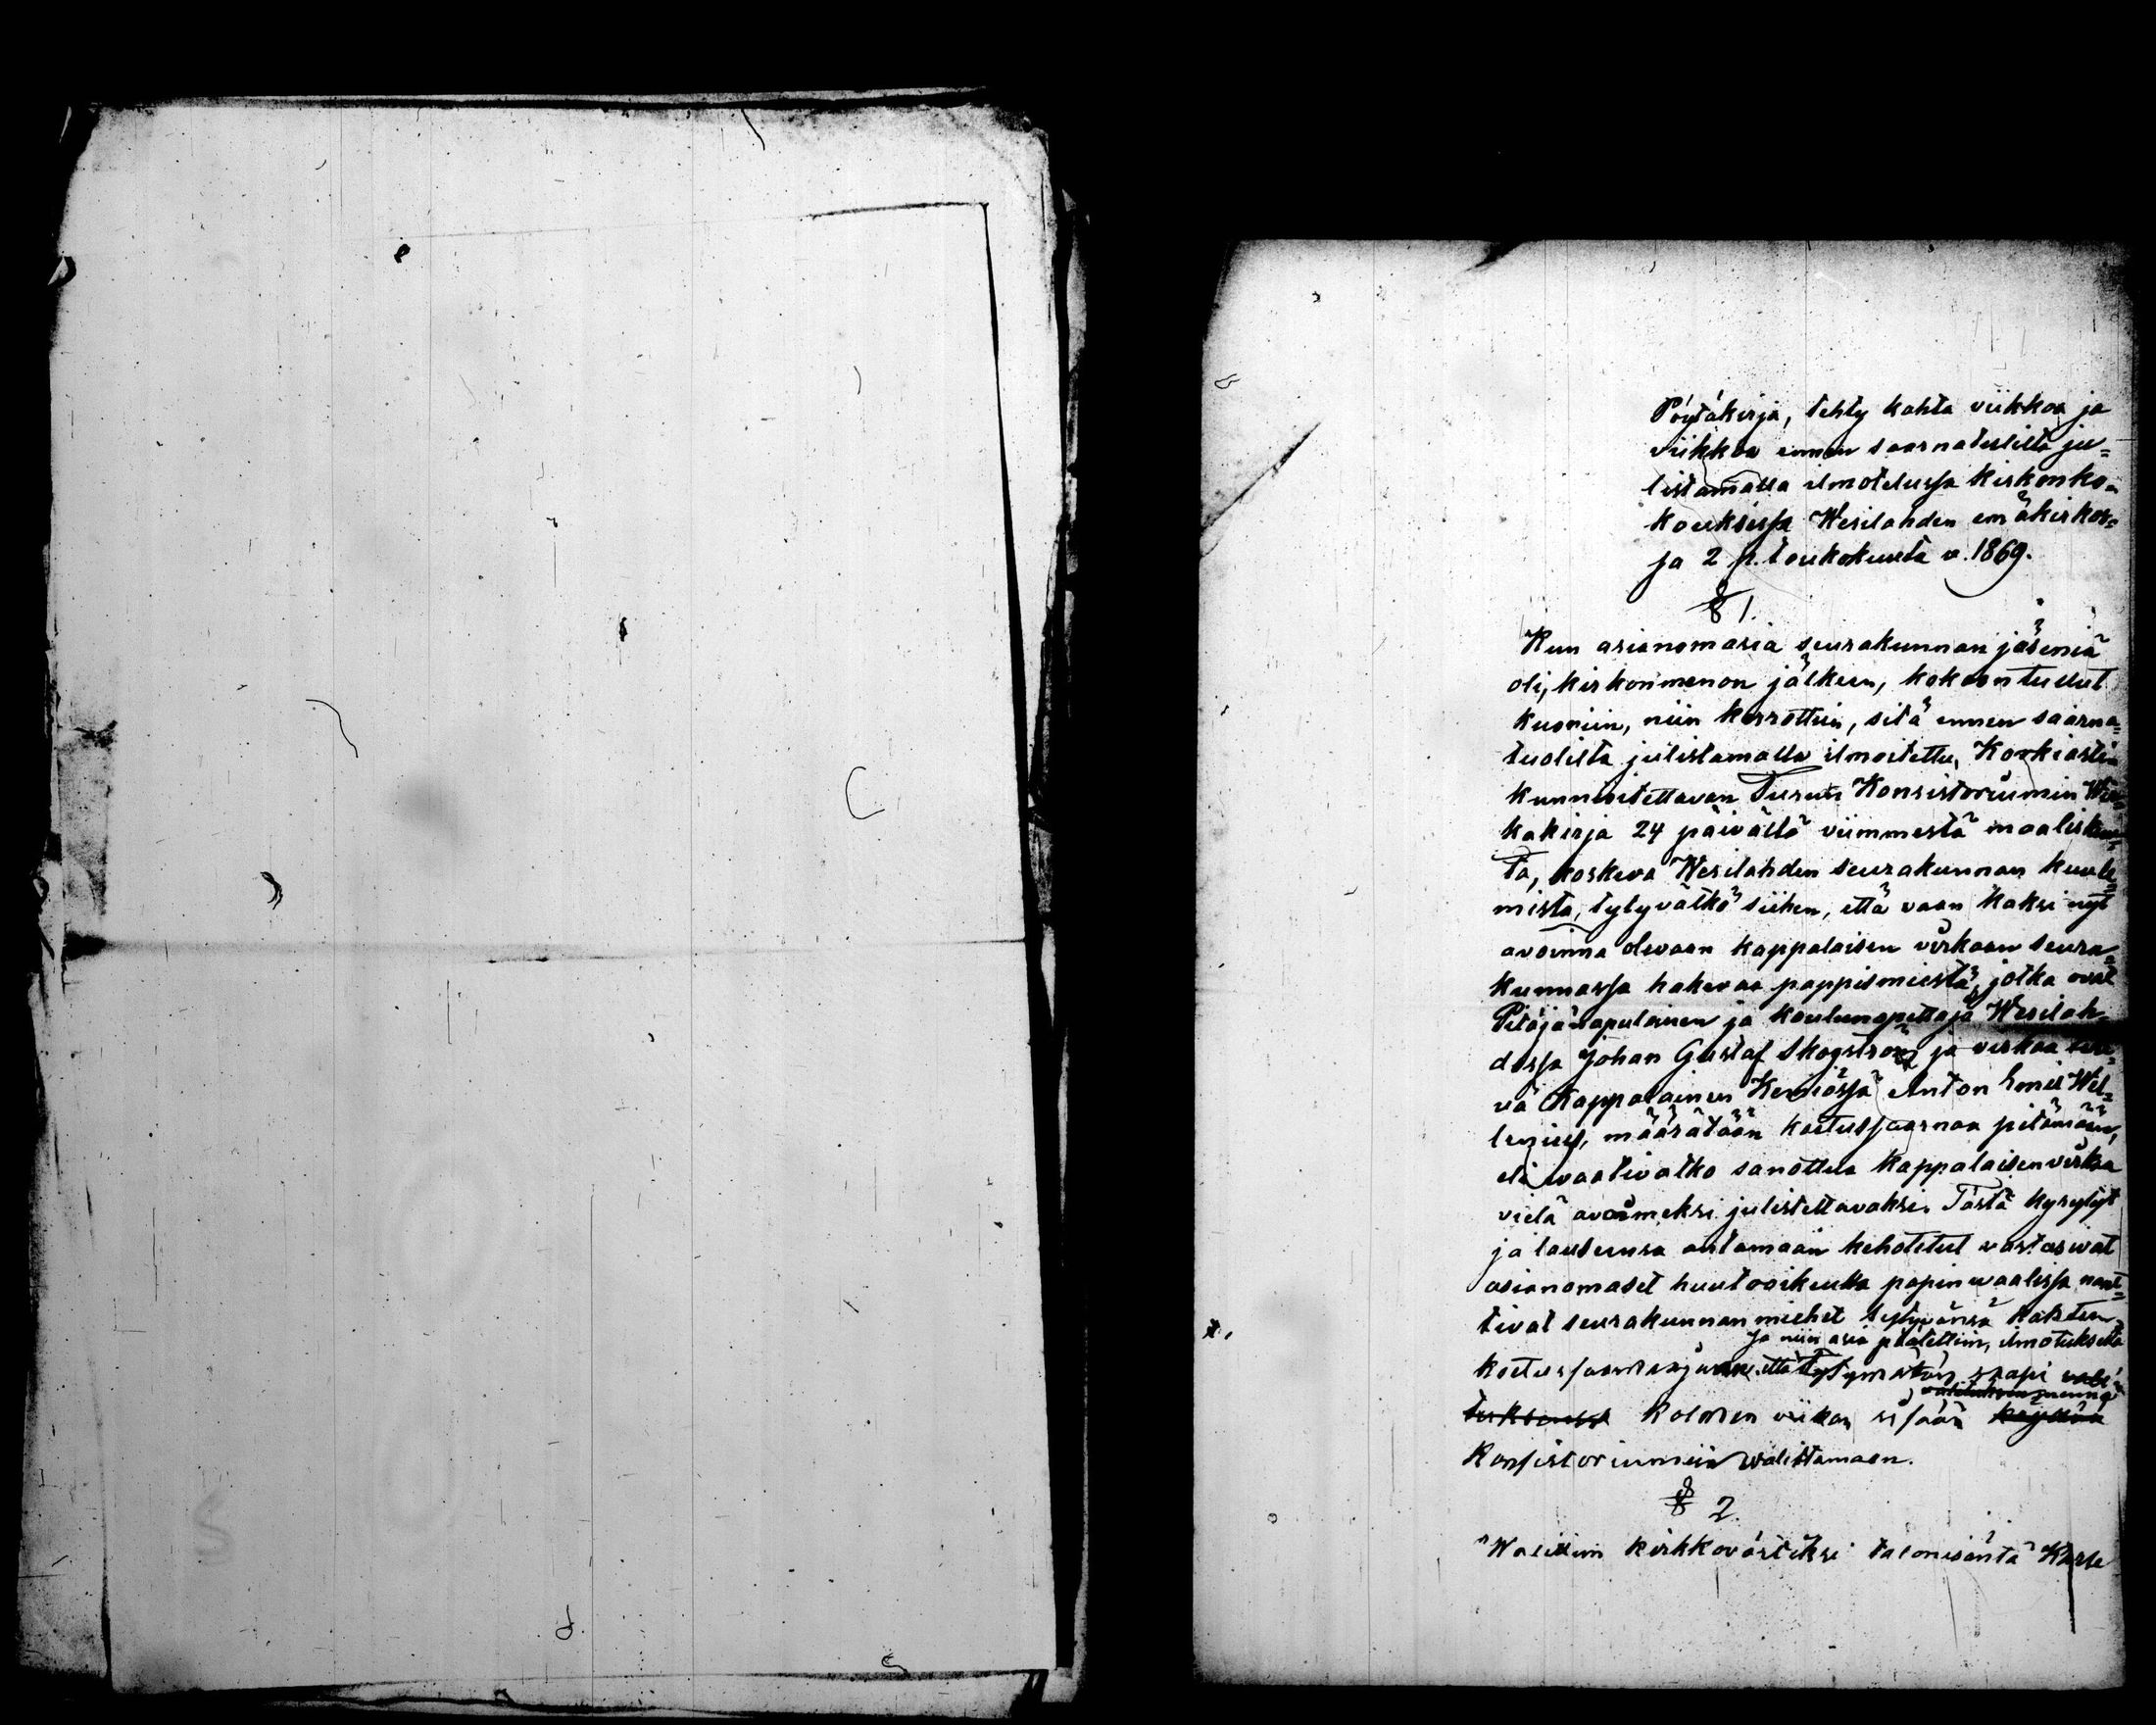 Pöytäkirja, tehty kahta viikkoa ja
viikkoa ennen saarnatuolilta ju-
listamalla ilmotelussa kirkonko-
kouksessa Wesilahden emäkirkos-
sa 2 p. toukokuuta v. 1869.
§ 1.
Kun asianomasia seurakunnan jäseniä
oli, kirkonmenon jälkeen, kokoontullut
kuoriin, niin kerrottiin, sitä ennen saarna-
tuolilta julistamalla ilmoitettu, Korkiasti-
kunnioitettavan Turun Konsistoriumin Wir-
kakirja 24 päivältä viimmestä maaliskuu-
ta, koskeva Wesilahden seurakunnan kuule-
mista, tytyvätkö siihen, että vaan kaksi nyt
avoinna olevaan kappalaisen virkaan seura-
kunnassa hakevaa pappismiestä, jotka ovat
Pitäjänapulainen ja koulunopettaja Wesilah-
dessa Johan Gustaf Skogström ja virkaa teke-
vä Kappalainen Kemiössä Anton Emil Wel-
lenius, määrätään koetussaarnaa pitämään,
eli vaativatko sanottua kappalaisenvirkaa
vielä avoimeksi julistettavaksi. Tästä kysytyt
ja lausunsa antamaan kehotetut vastasivat
asianomaset huutooikeutta papinvaalissa naut-
tivat seurakunnan miehet tytyvänsä kahteen
Ja niin asia päätettiin, ilmotuksella
koetussaarnaajaan. että tytymätön saapi vali-
valituksensa menna
tuksensa kolmen viikon sisään käydään
Konsistoriumiin walittamaan.
§ 2.
Walittiin kirkkovärtiksi talonisäntä Kalle